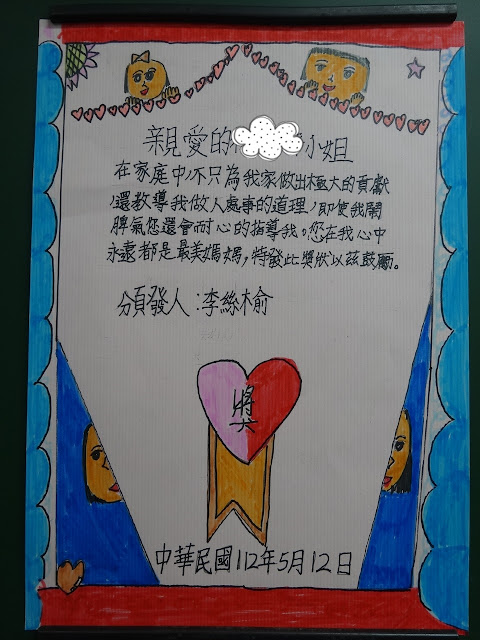 親愛的 小姐
在家庭中,不只為我家做出極大的貢獻
,還教導我做人處事的道理,即使我鬧
脾氣您還會耐心的指導我。您在我心中
永遠都是最美媽媽,特發此獎狀以茲鼓勵。
頒發人:李絲榆
獎
中華民國112年5月12日